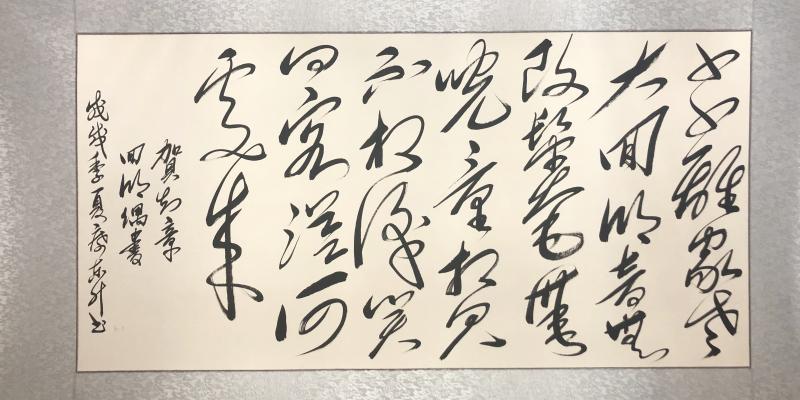 少小離家老
大回鄉音無
改鬢毛衰
兒童相見
不相識笑
問客從何
處來
賀知章
回鄉偶書
戊戌季夏东升书